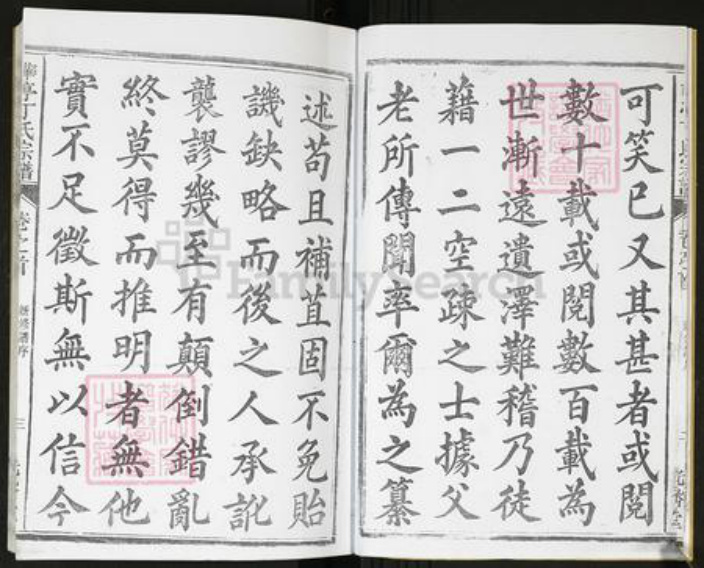 可笑已又其甚者或閱
數十載或閱數百載為
世漸遠遺澤難稽乃徒
藉一二空疎之士據父
老所傳聞率爾為之纂
述苟且補苴固不免貽
譏缺略而後之人承訛
襲謬幾至有顛倒錯亂
終莫得而推明者無他
實不足徵斯無以信今
丁氏宗譜
卷之首
三
FamilySearch